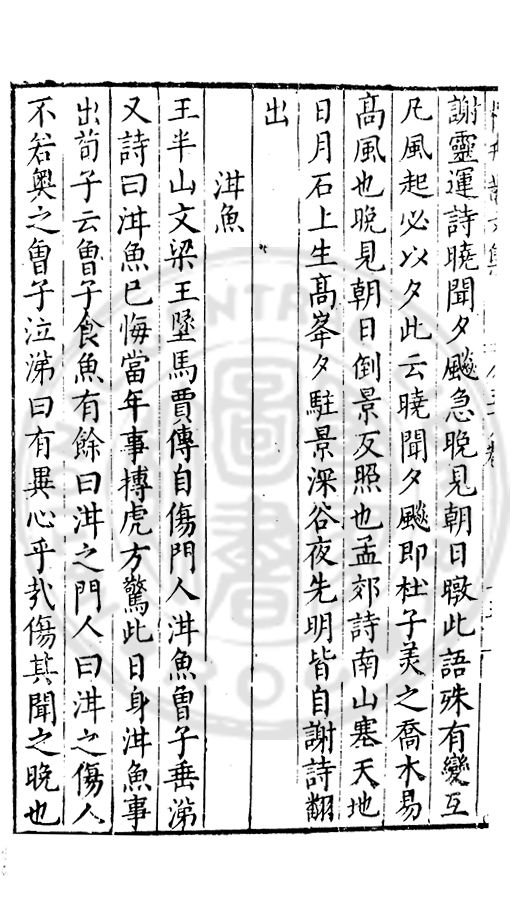 謝靈運詩曉聞夕飈急晚見朝日暾此語殊有變互
凡風起必以夕此云曉聞夕飈即杜子美之喬木易
髙風也晚見朝日倒景反照也孟郊詩南山塞天地
日月石上生髙峯夕駐景深谷夜先明皆自謝詩翻
出
泔魚
王半山文梁王墜馬賈傅自傷門人泔魚曾子垂涕
又詩曰泔魚已悔當年事摶虎方驚此日身泔魚事
出荀子云曾子食魚有餘曰泔之門人曰泔之傷人
不若奥之曾子泣涕曰有異心乎㢤傷其聞之晚也